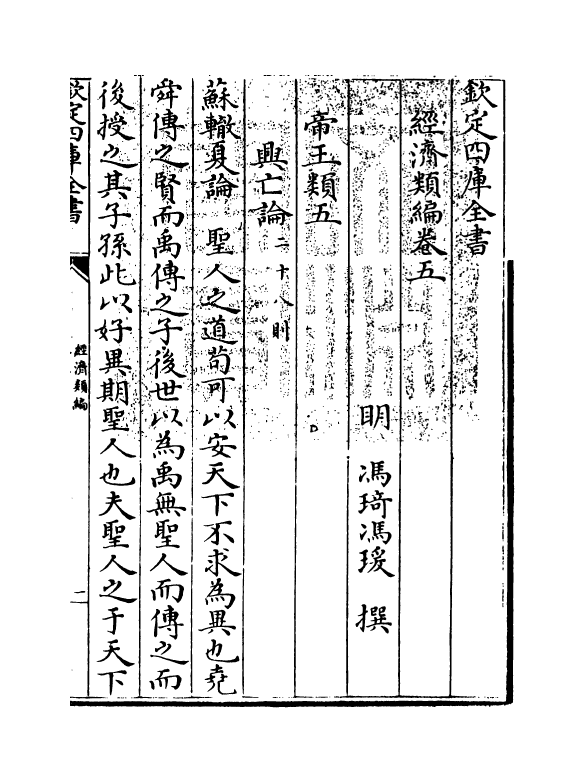 欽定四庫全書
經濟類編卷五
明 馮琦馮瑗 撰
帝王類五
興亡論二十八則
蘇轍夏論 聖人之道苟可以安天下不求為異也堯
舜傳之賢而禹傳之子後世以為禹無聖人而傳之而
後授之其子孫此以好異期聖人也夫聖人之于天下
欽定四庫全書
經濟類編